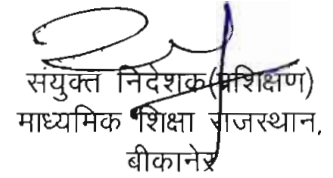 संयुक्त निदेशक(प्रशिक्षण)
माध्यमिक शिक्षा राजस्थान,
बीकानेर